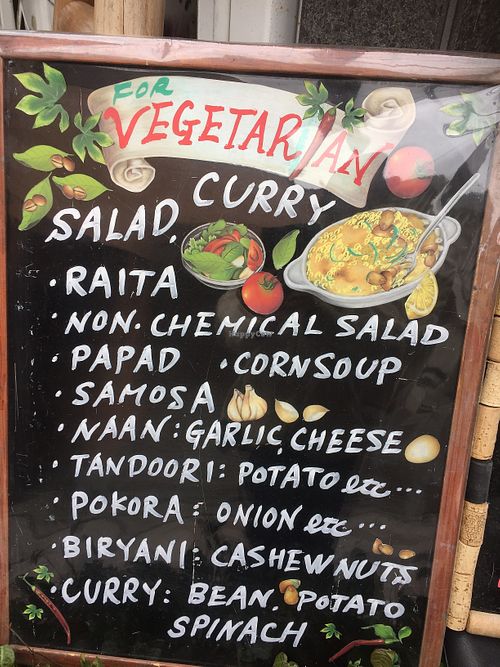 FOR
VEGETARIAN
CURRY
SALAD,
· RAITA
· NON·CHEMICAL SALAD
· PAPAD · CORNSOUP
· SAMOSA
· NAAN: GARLIC, CHEESE
· TANDOORI: POTATO etc...
· POKORA: ONION etc...
· BIRYANI: CASHEWNUTS
· CURRY: BEAN, POTATO
SPINACH